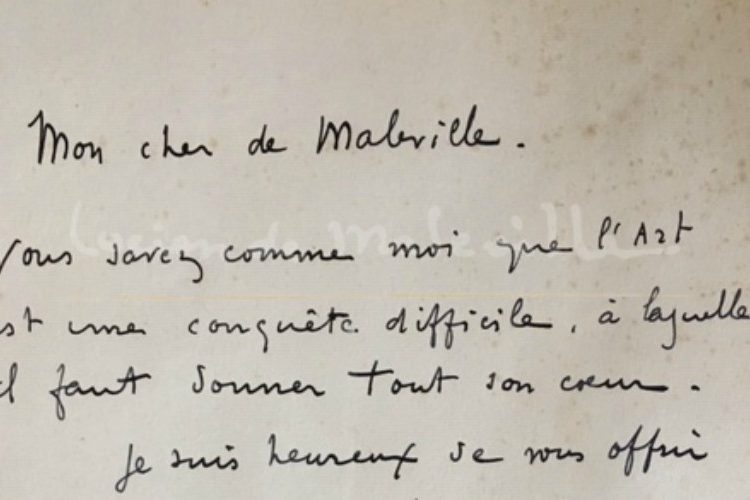 Mon cher de Maleville.
Lucien de Maleville
Vous savez comme moi que l'Art
est une conquête difficile, à laquelle
il faut donner tout son cœur.
Je suis heureux de vous offrir